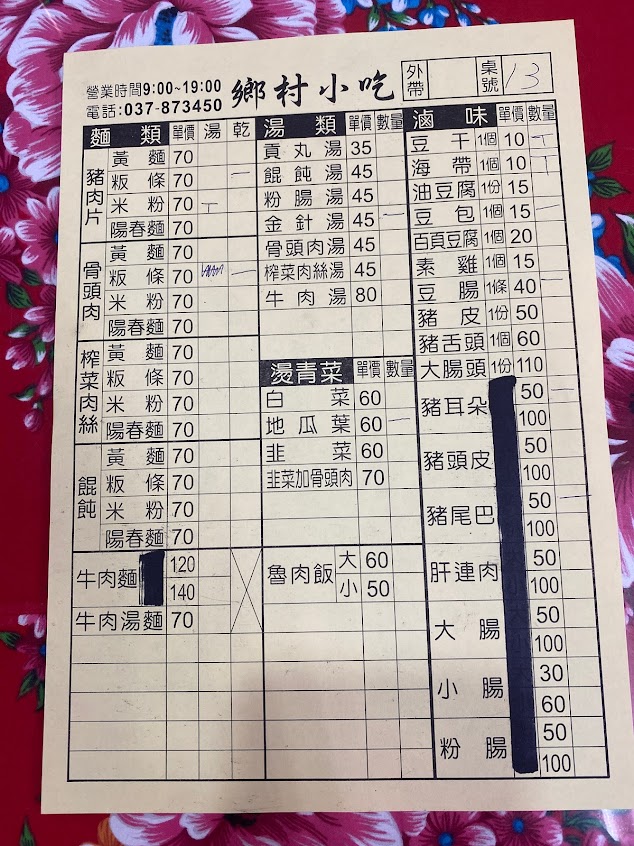 營業時間9:00~19:00
電話:037-873450
鄉村小吃
外帶
桌號 13
麵類 單價 湯 乾
豬肉片
黃麵 70
粄條 70 一
米粉 70 T
陽春麵 70
骨頭肉
黃麵 70
粄條 70 一
米粉 70
陽春麵 70
榨菜肉絲
黃麵 70
粄條 70
米粉 70
陽春麵 70
餛飩
黃麵 70
粄條 70
米粉 70
陽春麵 70
牛肉麵 120
140
牛肉湯麵 70
湯類 單價 數量
貢丸湯 35
餛飩湯 45
粉腸湯 45
金針湯 45 一
骨頭肉湯 45
榨菜肉絲湯 45
牛肉湯 80
燙青菜 單價 數量
白菜 60
地瓜葉 60 一
韭菜 60
韭菜加骨頭肉 70
魯肉飯 大 60
小 50
滷味 單價 數量
豆干 1個 10 T
海帶 1個 10 T
油豆腐 1份 15
豆包 1個 15 一
百頁豆腐 1個 20
素雞 1個 15
豆腸 1條 40
豬皮 1份 50
豬舌頭 1個 60
大腸頭 1份 110
豬耳朵 50 一
100
豬頭皮 50
100
豬尾巴 50 一
100
肝連肉 50
100
大腸 50
100
小腸 30
60
粉腸 50
100